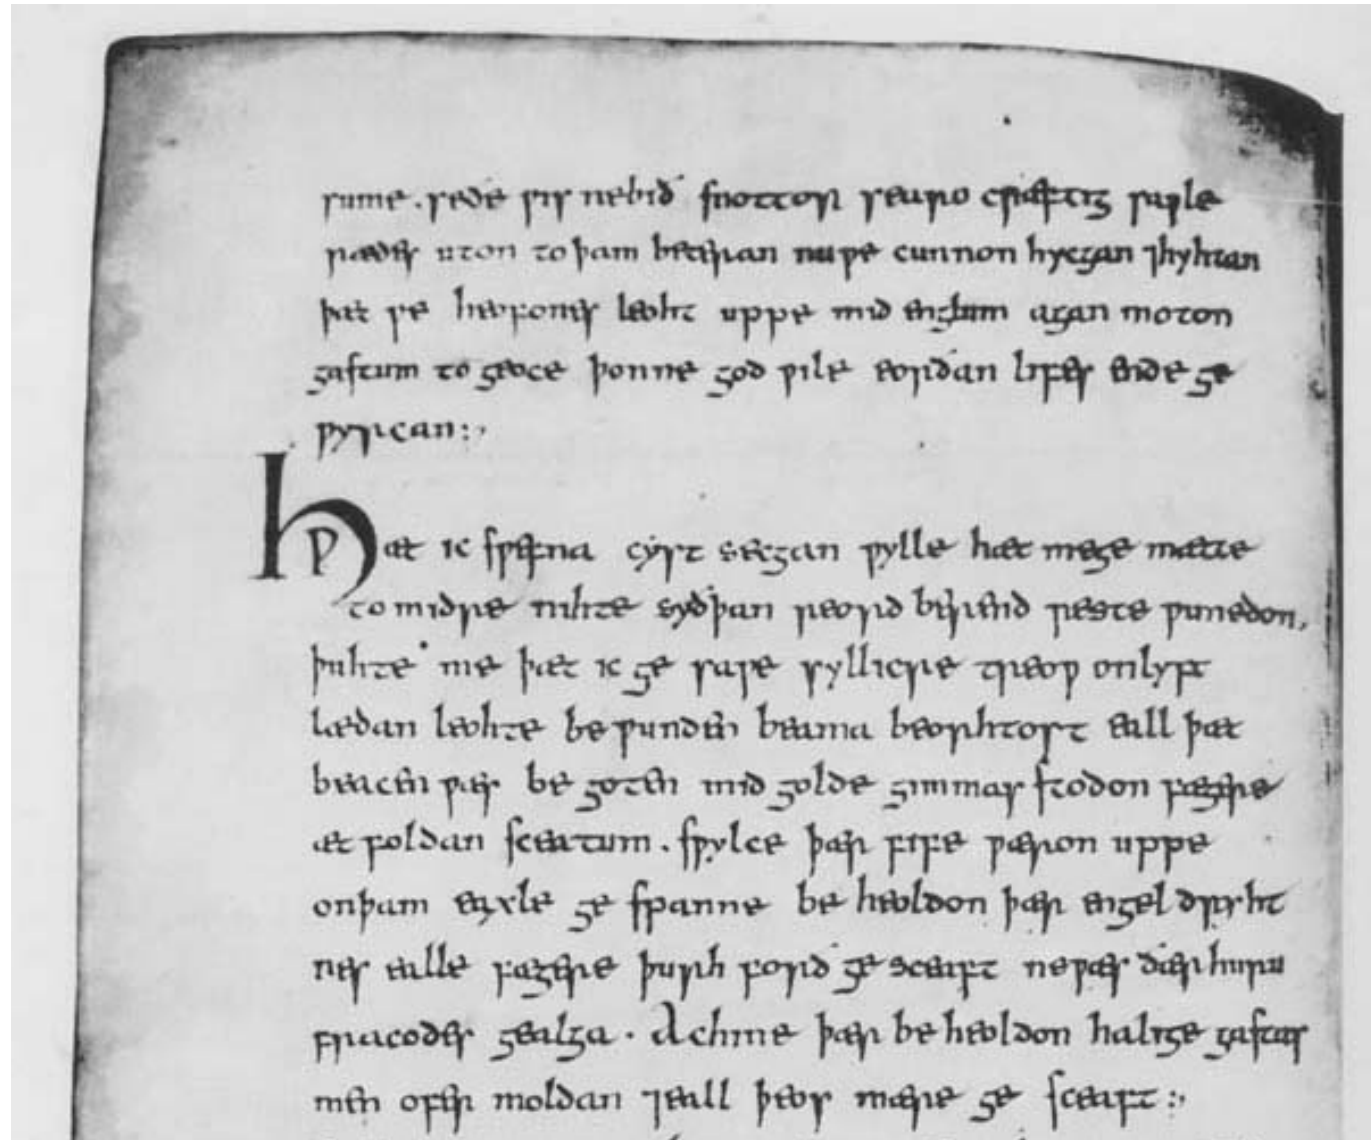 sume . seðe ƿis nebið snottor searo cræftig saƿle
rædes uton to þam beteran nu ƿe cunnon hycgan ⁊hyhtan
þæt ƿe heofones leoht uppe mid englum agan moton
gastum to geoce þonne god ƿile eorðan lifes ende ge
ƿyrcan :,
Hƿæt ic sƿefna cyst secgan ƿylle hæt mege mætte
to midre nihte sydþan reord berend reste ƿunedon,
þuhte me þæt ic ge saƿe syllicre treoƿ onlyft
lædan leohte be ƿunden beama beorhtost eall þæt
beacen ƿæs be goten mid golde gimmas stodon fægere
æt foldan sceatum . sƿylce þær fife ƿæron uppe
onþam eaxle ge spanne be heoldon þær engel dryht
nes ealle fægere þurh forð ge sceaft ne ƿæs ðær huru
fracodes gealga . Ac hine þær be heoldon halige gastas
men ofer moldan ⁊eall þeos mære ge sceaft :,